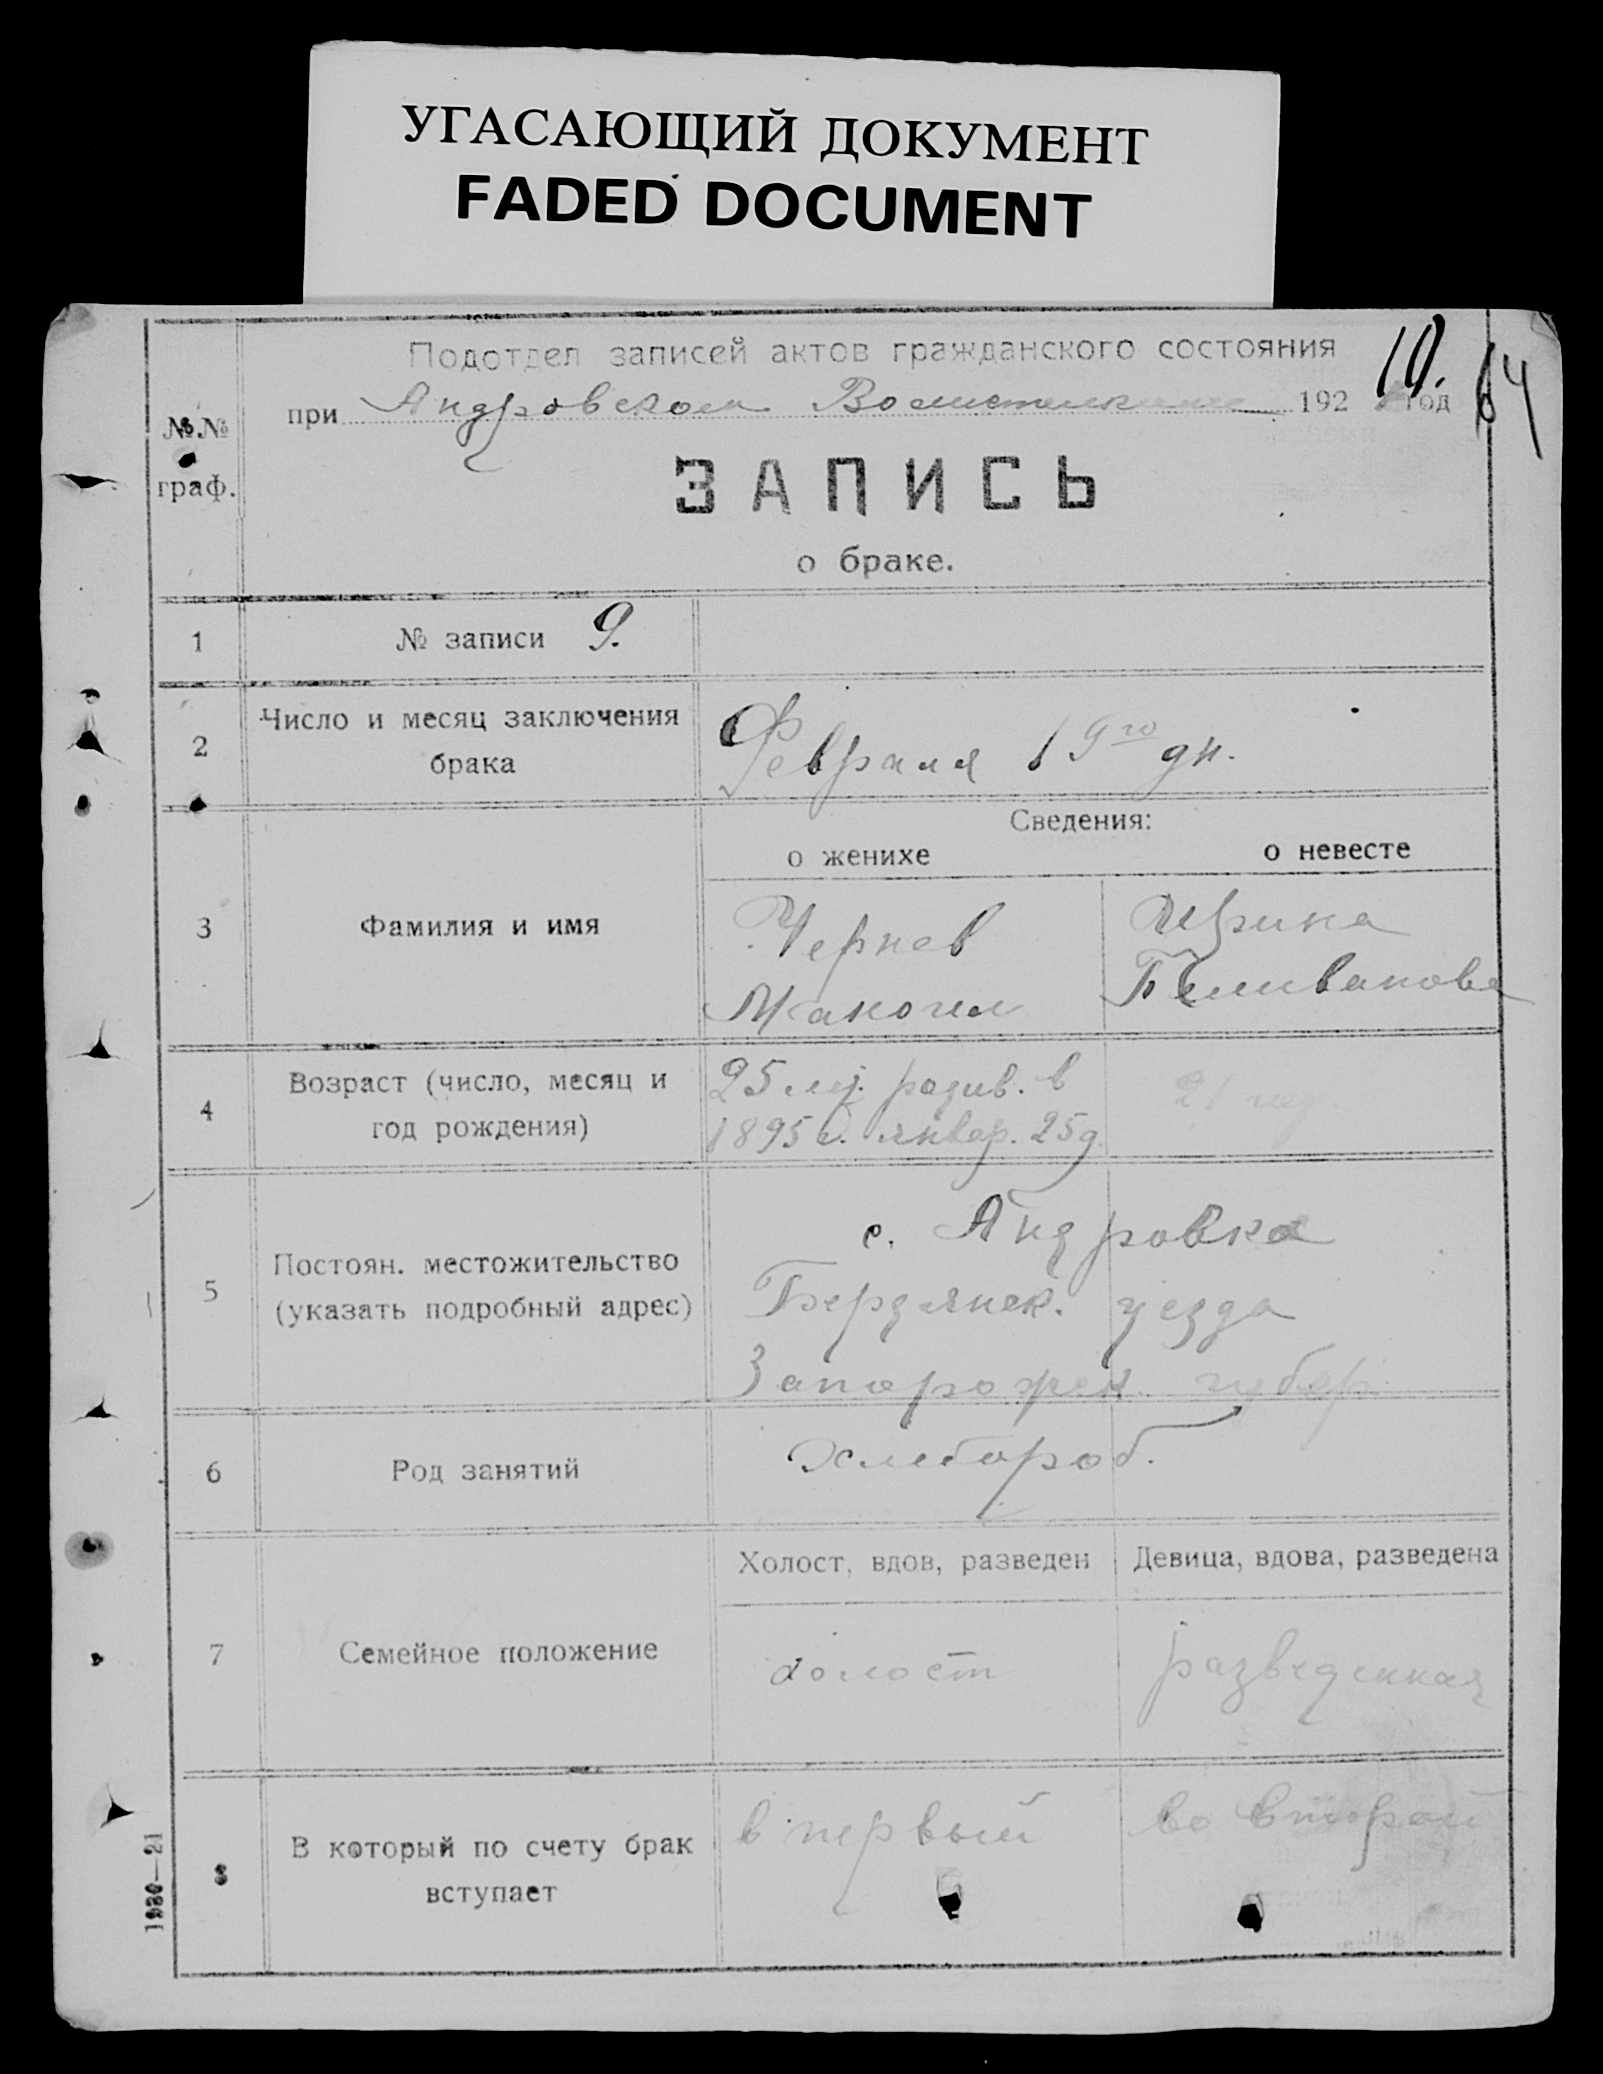 УГАСАЮЩИЙ ДОКУМЕНТ
FADED DOCUMENT
Подотдел записей актов гражданского состояния
при Андровском 192 год
10. 64
№.№
граф.
ЗАПИСЬ
о браке.
1 № записи 9.
2 Число и месяц заключения
брака
Февраля 19го дн.
Сведения:
о женихе о невесте
3 Фамилия и имя
Чернев Ирина
4 Возраст (число, месяц и
год рождения)
25 в
1895 г. январ. 25 д. 21
5 Постоян. местожительство
(указать подробный адрес)
с. Андровка
Бердянск. уезда
Запорожск. губер.
6 Род занятий
Хлебороб.
Холост, вдов, разведен Девица, вдова, разведена
7 Семейное положение
холост разведенная
8 В который по счету брак
вступает
в первый во второй
1930—21